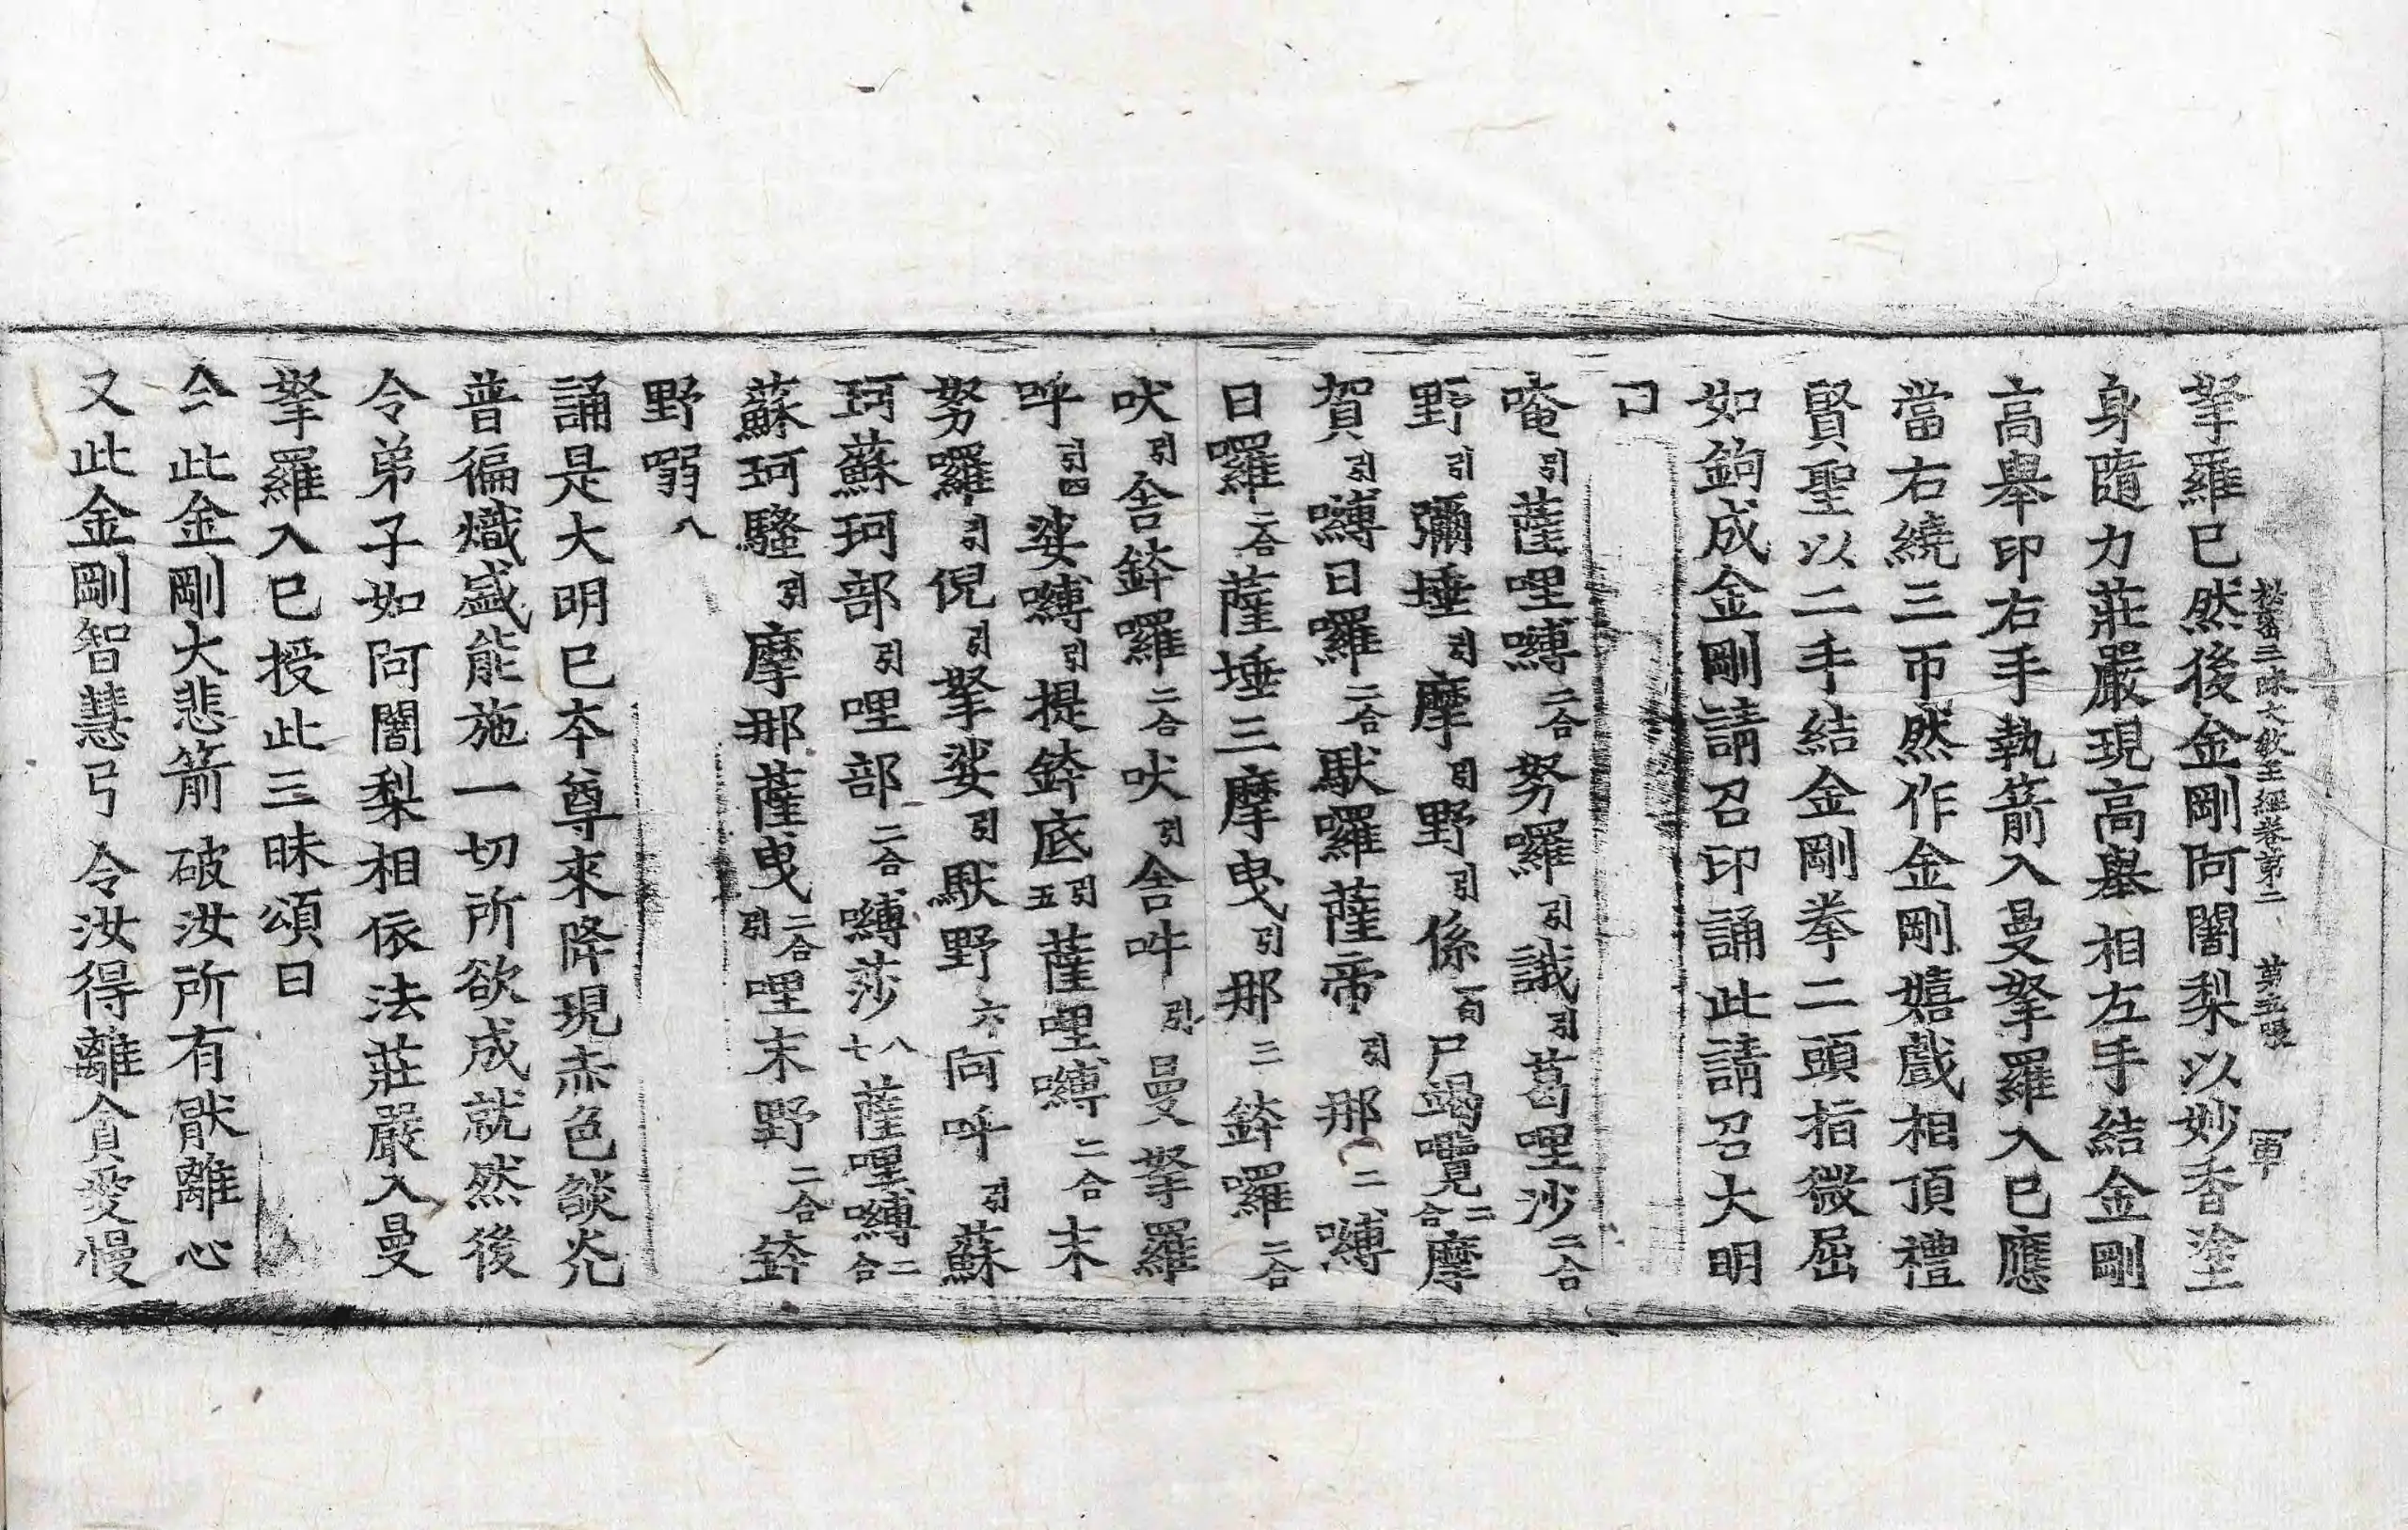 拏羅已然後金剛阿闍梨以妙香塗
秘密三昧大教王經卷第二 第五張 軍
身隨力莊嚴現高舉相左手結金剛
高舉印右手執箭入曼拏羅入已應
當右繞三帀然作金剛嬉戲相頂禮
賢聖以二手結金剛拳二頭指微屈
如鉤成金剛請召印誦此請召大明
曰
唵引薩哩嚩二合努囉引誐引葛哩沙二合
野一引彌捶引摩引野引係一句尸竭嚂二合摩
賀引嚩日囉二合馱囉薩帝引那二嚩
日囉二合薩埵三摩曳引那三鉢羅二合
吠引舍鉢羅二合吠引舍吽引曼拏羅
呼引四娑嚩引提鉢底引五薩哩嚩二合末
努囉引倪引拏娑引馱野六阿呼引蘇
珂蘇珂部引哩部二合嚩莎七八薩哩嚩二合
蘇珂騷引摩那薩曳二合引哩末野二合鉢
野弱八
誦是大明已本尊來降現赤色燄光
普徧熾盛能施一切所欲成就然後
令弟子如阿闍梨相依法莊嚴入曼
拏羅入已授此三昧頌曰
今此金剛大悲箭 破汝所有猒離心
又此金剛智慧弓 令汝得離貪愛慢